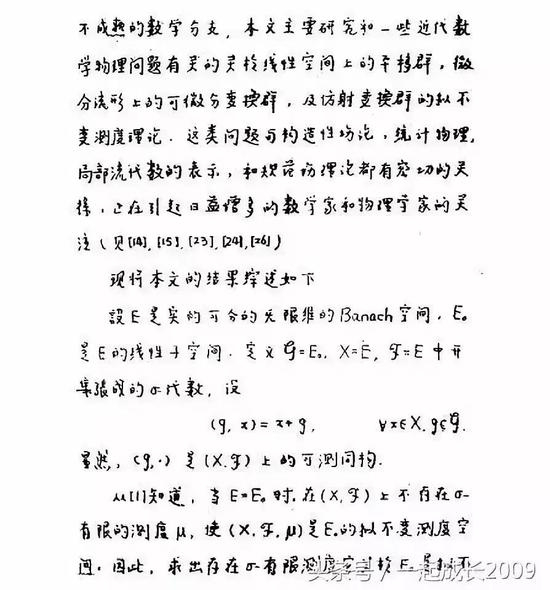 不成熟的数学分支，本文主要研究和一些近代数
学物理问题有关的关于线性空间上的平移群，微
分流形上的可微分变换群，及仿射变换群的拟不
变测度理论．这类问题与构造性场论，统计物理，
局部流代数的表示，和规范场理论都有密切的关
系，正在引起日益增多的数学家和物理学家的关
注（见[14],[15],[23],[24],[26]）
现将本文的结果综述如下
设E是实的可分的无限维的Banach空间，E₀
是E的线性子空间．定义𝒢=E₀, X=E, ℱ=E中开
集张成的σ代数，设
(g, x)=x+g, ∀x∈X, g∈𝒢.
显然，(g,·)是(X,ℱ)上的可测同构．
从[1]知道，当E=E₀时，在(X,ℱ)上不存在σ-
有限的测度μ，使(X,ℱ,μ)是E₀的拟不变测度空
间．因此，求出存在σ-有限测度
头条号／一起成长2009